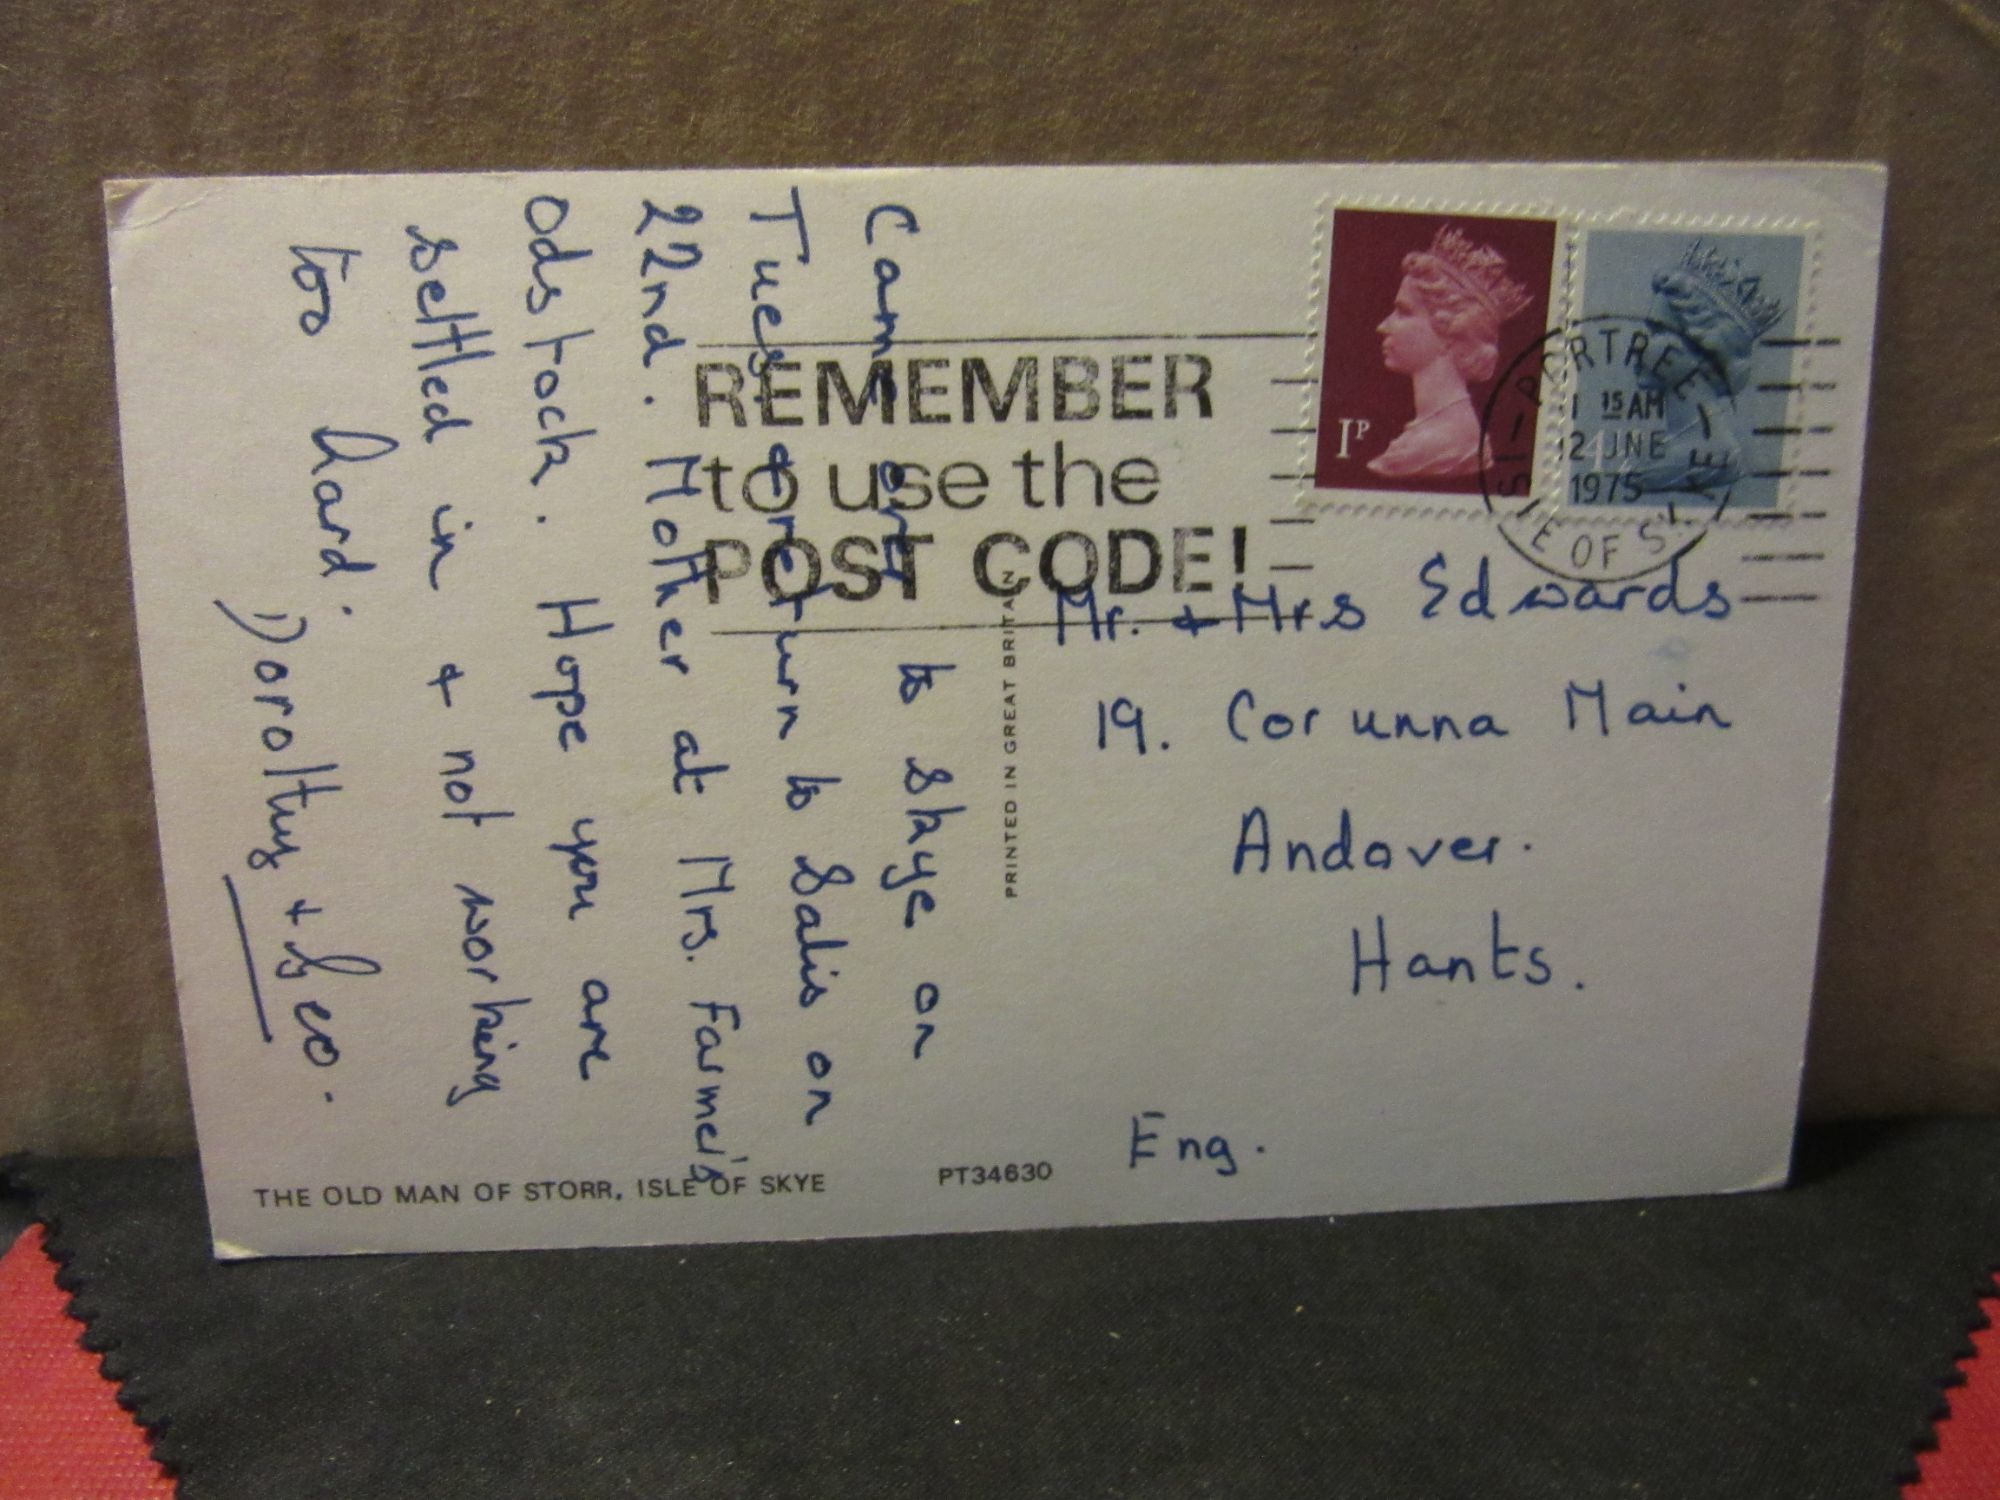 Came over to Skye on
Tues & return to Salis on
22nd. Mother at Mrs. Farmer's
Odstock. Hope you are
settled in & not working
too hard.
Dorothy & Geo.
REMEMBER
to use the
POST CODE!
1P
PORTREE
1 15 AM
12 JNE
1975
ISLE OF SKYE
Mr. & Mrs Edwards
19. Corunna Main
Andover.
Hants.
Eng.
PRINTED IN GREAT BRITAIN
THE OLD MAN OF STORR, ISLE OF SKYE
PT34630